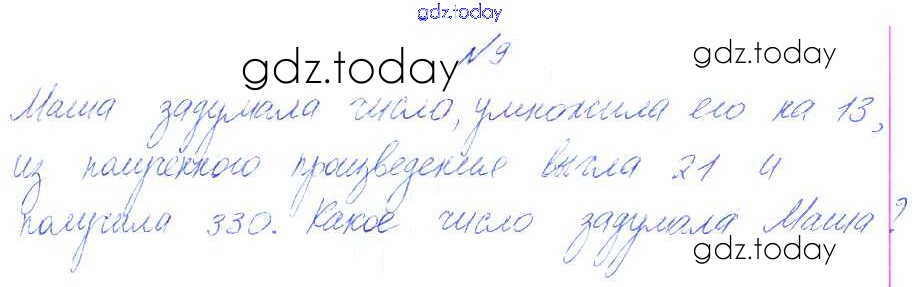 gdz.today
№ 9
gdz.today gdz.today
Маша задумала число, умножила его на 13,
из полученного произведения вычла 21 и
получила 330. Какое число задумала Маша?
gdz.today